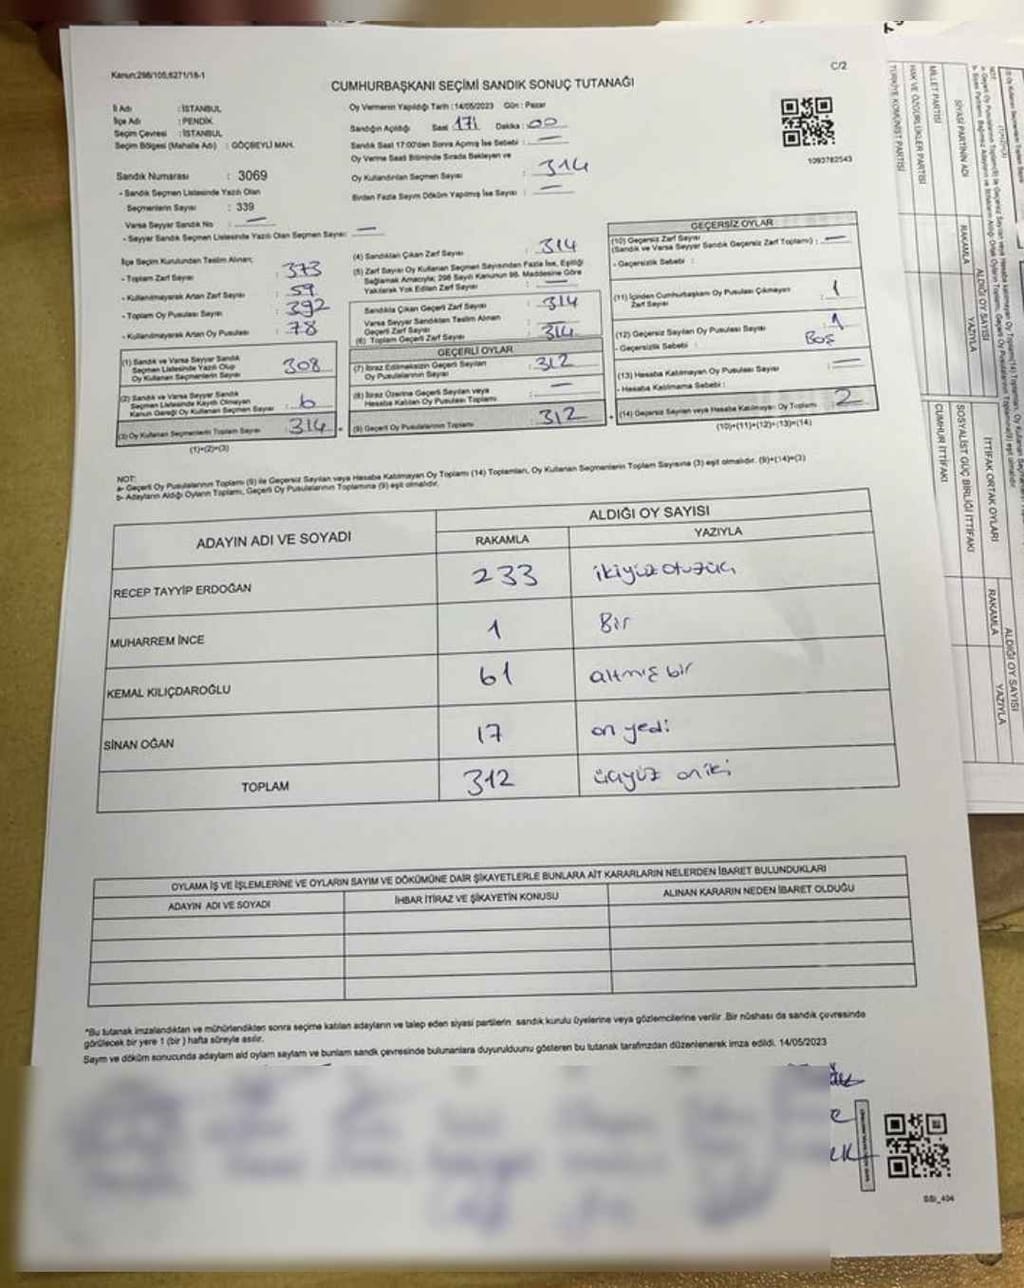 Kanun:298/105,6271/18-1
C/2
CUMHURBAŞKANI SEÇİMİ SANDIK SONUÇ TUTANAĞI
İl Adı : İSTANBUL
İlçe Adı : PENDİK
Seçim Çevresi : İSTANBUL
Seçim Bölgesi (Mahalle Adı) : GÖÇBEYLİ MAH.
Oy Vermenin Yapıldığı Tarih : 14/05/2023 Gün : Pazar
Sandığın Açıldığı Saat : 17 Dakika : 00
Sandık Saat 17:00'den Sonra Açılmış İse Sebebi : —
Oy Verme Saati Bitiminde Sırada Bekleyen ve
Oy Kullandırılan Seçmen Sayısı : 314
Birden Fazla Sayım Döküm Yapılmış İse Sayısı : —
1093782543
Sandık Numarası : 3069
- Sandık Seçmen Listesinde Yazılı Olan
Seçmenlerin Sayısı : 339
Varsa Seyyar Sandık No : —
- Seyyar Sandık Seçmen Listesinde Yazılı Olan Seçmen Sayısı: —
İlçe Seçim Kurulundan Teslim Alınan;
- Toplam Zarf Sayısı : 373
- Kullanılmayarak Artan Zarf Sayısı : 59
- Toplam Oy Pusulası Sayısı : 392
- Kullanılmayarak Artan Oy Pusulası : 78
(1) Sandık ve Varsa Seyyar Sandık
Seçmen Listesinde Yazılı Olup
Oy Kullanan Seçmenlerin Sayısı : 308
(2) Sandık ve Varsa Seyyar Sandık
Seçmen Listesinde Kayıtlı Olmayan
Kanun Gereği Oy Kullanan Seçmen Sayısı : 6
(3) Oy Kullanan Seçmenlerin Toplam Sayısı : 314
(1)+(2)=(3)
(4) Sandıktan Çıkan Zarf Sayısı : 314
(5) Zarf Sayısı Oy Kullanan Seçmen Sayısından Fazla İse, Eşitliği
Sağlamak Amacıyla; 298 Sayılı Kanunun 98. Maddesine Göre
Yakılarak Yok Edilen Zarf Sayısı : —
Sandıkta Çıkan Geçerli Zarf Sayısı : 314
Varsa Seyyar Sandıktan Teslim Alınan
Geçerli Zarf Sayısı :
(6) Toplam Geçerli Zarf Sayısı : 314
GEÇERLİ OYLAR
(7) İtiraz Edilmeksizin Geçerli Sayılan
Oy Pusulalarının Sayısı : 312
(8) İtiraz Üzerine Geçerli Sayılan veya
Hesaba Katılan Oy Pusulası Toplamı : —
(9) Geçerli Oy Pusulalarının Toplamı : 312
GEÇERSİZ OYLAR
(10) Geçersiz Zarf Sayısı
(Sandık ve Varsa Seyyar Sandık Geçersiz Zarf Toplamı) : —
- Geçersizlik Sebebi :
(11) İçinden Cumhurbaşkanı Oy Pusulası Çıkmayan
Zarf Sayısı : 1
(12) Geçersiz Sayılan Oy Pusulası Sayısı : 1
- Geçersizlik Sebebi : Boş
(13) Hesaba Katılmayan Oy Pusulası Sayısı : —
- Hesaba Katılmama Sebebi :
(14) Geçersiz Sayılan veya Hesaba Katılmayan Oy Toplamı : 2
(10)+(11)+(12)+(13)=(14)
NOT:
a- Geçerli Oy Pusulalarının Toplamı (9) ile Geçersiz Sayılan veya Hesaba Katılmayan Oy Toplamı (14) Toplamları, Oy Kullanan Seçmenlerin Toplam Sayısına (3) eşit olmalıdır. (9)+(14)=(3)
b- Adayların Aldığı Oyların Toplamı, Geçerli Oy Pusulalarının Toplamına (9) eşit olmalıdır.
ADAYIN ADI VE SOYADI
ALDIĞI OY SAYISI
RAKAMLA YAZIYLA
RECEP TAYYİP ERDOĞAN 233 ikiyüz otuzüç
MUHARREM İNCE 1 Bir
KEMAL KILIÇDAROĞLU 61 altmış bir
SİNAN OĞAN 17 on yedi
TOPLAM 312 üçyüz oniki
OYLAMA İŞ VE İŞLEMLERİNE VE OYLARIN SAYIM VE DÖKÜMÜNE DAİR ŞİKAYETLERLE BUNLARA AİT KARARLARIN NELERDEN İBARET BULUNDUKLARI
ADAYIN ADI VE SOYADI İHBAR İTİRAZ VE ŞİKAYETİN KONUSU ALINAN KARARIN NEDEN İBARET OLDUĞU
*Bu tutanak imzalandıktan ve mühürlendikten sonra seçime katılan adayların ve talep eden siyasi partilerin sandık kurulu üyelerine veya gözlemcilerine verilir. Bir nüshası da sandık çevresinde
görülecek bir yere 1 (bir) hafta süreyle asılır.
Sayım ve döküm sonucunda adayların aldığı oyların sayların ve bunların sandık çevresinde bulunanlara duyurulduunu gösteren bu tutanak tarafmzdan düzenlenerek imza edildi. 14/05/2023
SSİ_404
SİYASİ PARTİNİN ADI
ALDIĞI OY SAYISI
RAKAMLA YAZIYLA
MİLLET PARTİSİ
HAK VE ÖZGÜRLÜKLER PARTİSİ
TÜRKİYE KOMÜNİST PARTİSİ
İTTİFAK ORTAK OYLARI
ALDIĞI OY SAYISI
RAKAMLA YAZIYLA
SOSYALİST GÜÇ BİRLİĞİ İTTİFAKI
CUMHUR İTTİFAKI